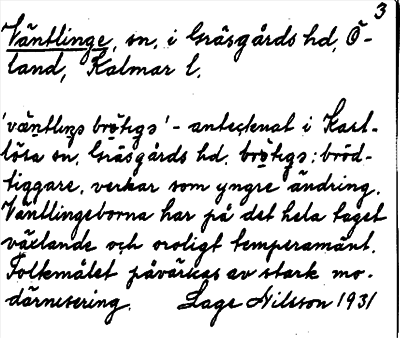 3
Väntlinge, sn, i Gräsgårds hd, Ö-
land, Kalmar l.
'väntlings brötigs' - antecknat i Kast-
lösa sn, Gräsgårds hd, brötigs: bröd-
tiggare, verkar som yngre ändring.
Väntlingeborna har på det hela taget
växlande och oroligt temperamänt.
Folkmålet påvärkas av stark mo-
därnisering. Lage Nilsson 1931